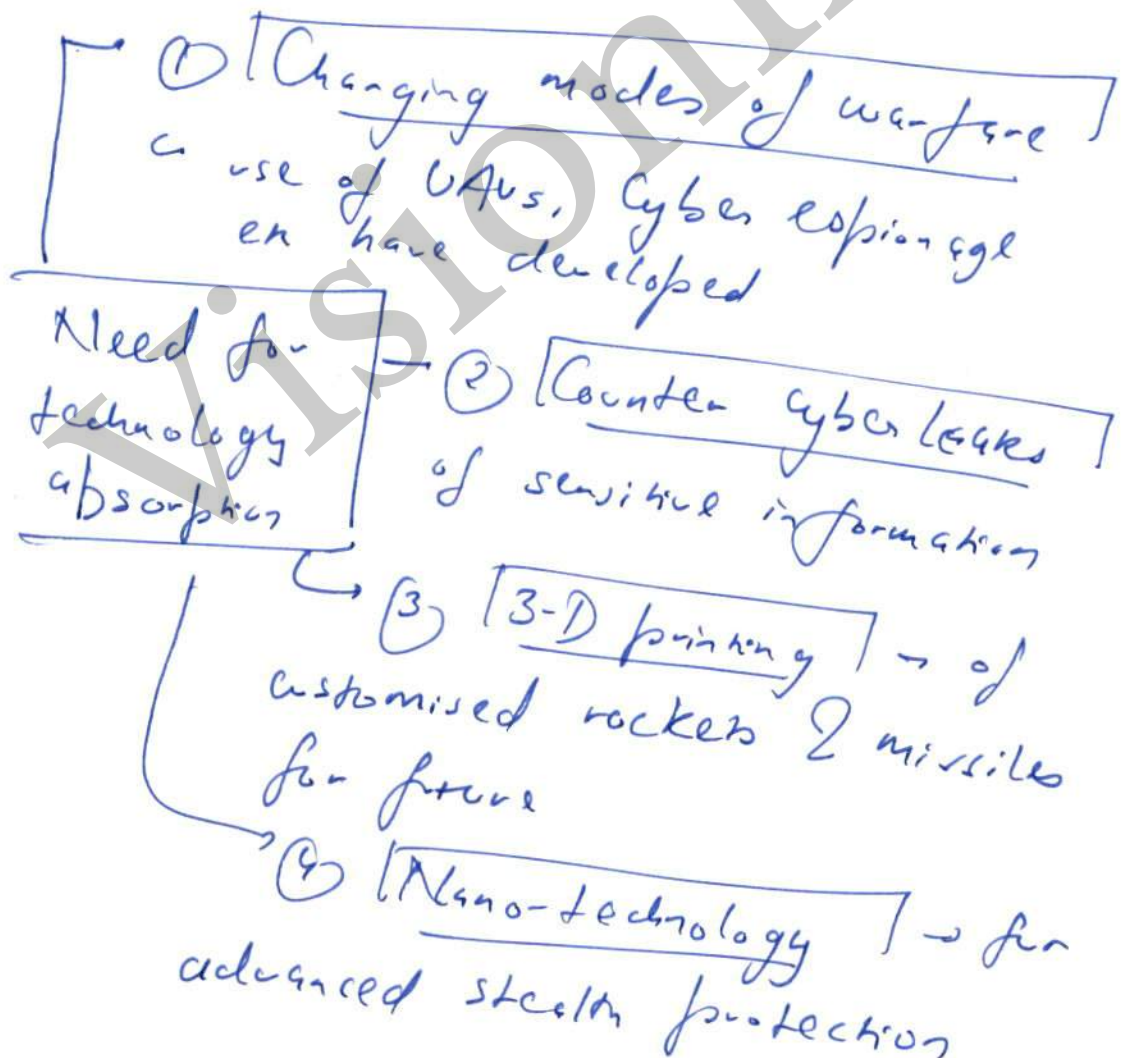 ① Changing modes of warfare
↳ use of UAVs, Cyber espionage
etc have developed
Need for
technology
absorption
② Counter cyber leaks
of sensitive information
③ 3-D printing → of
customised rockets & missiles
for future
④ Nano-technology → for
advanced stealth protection
Vision